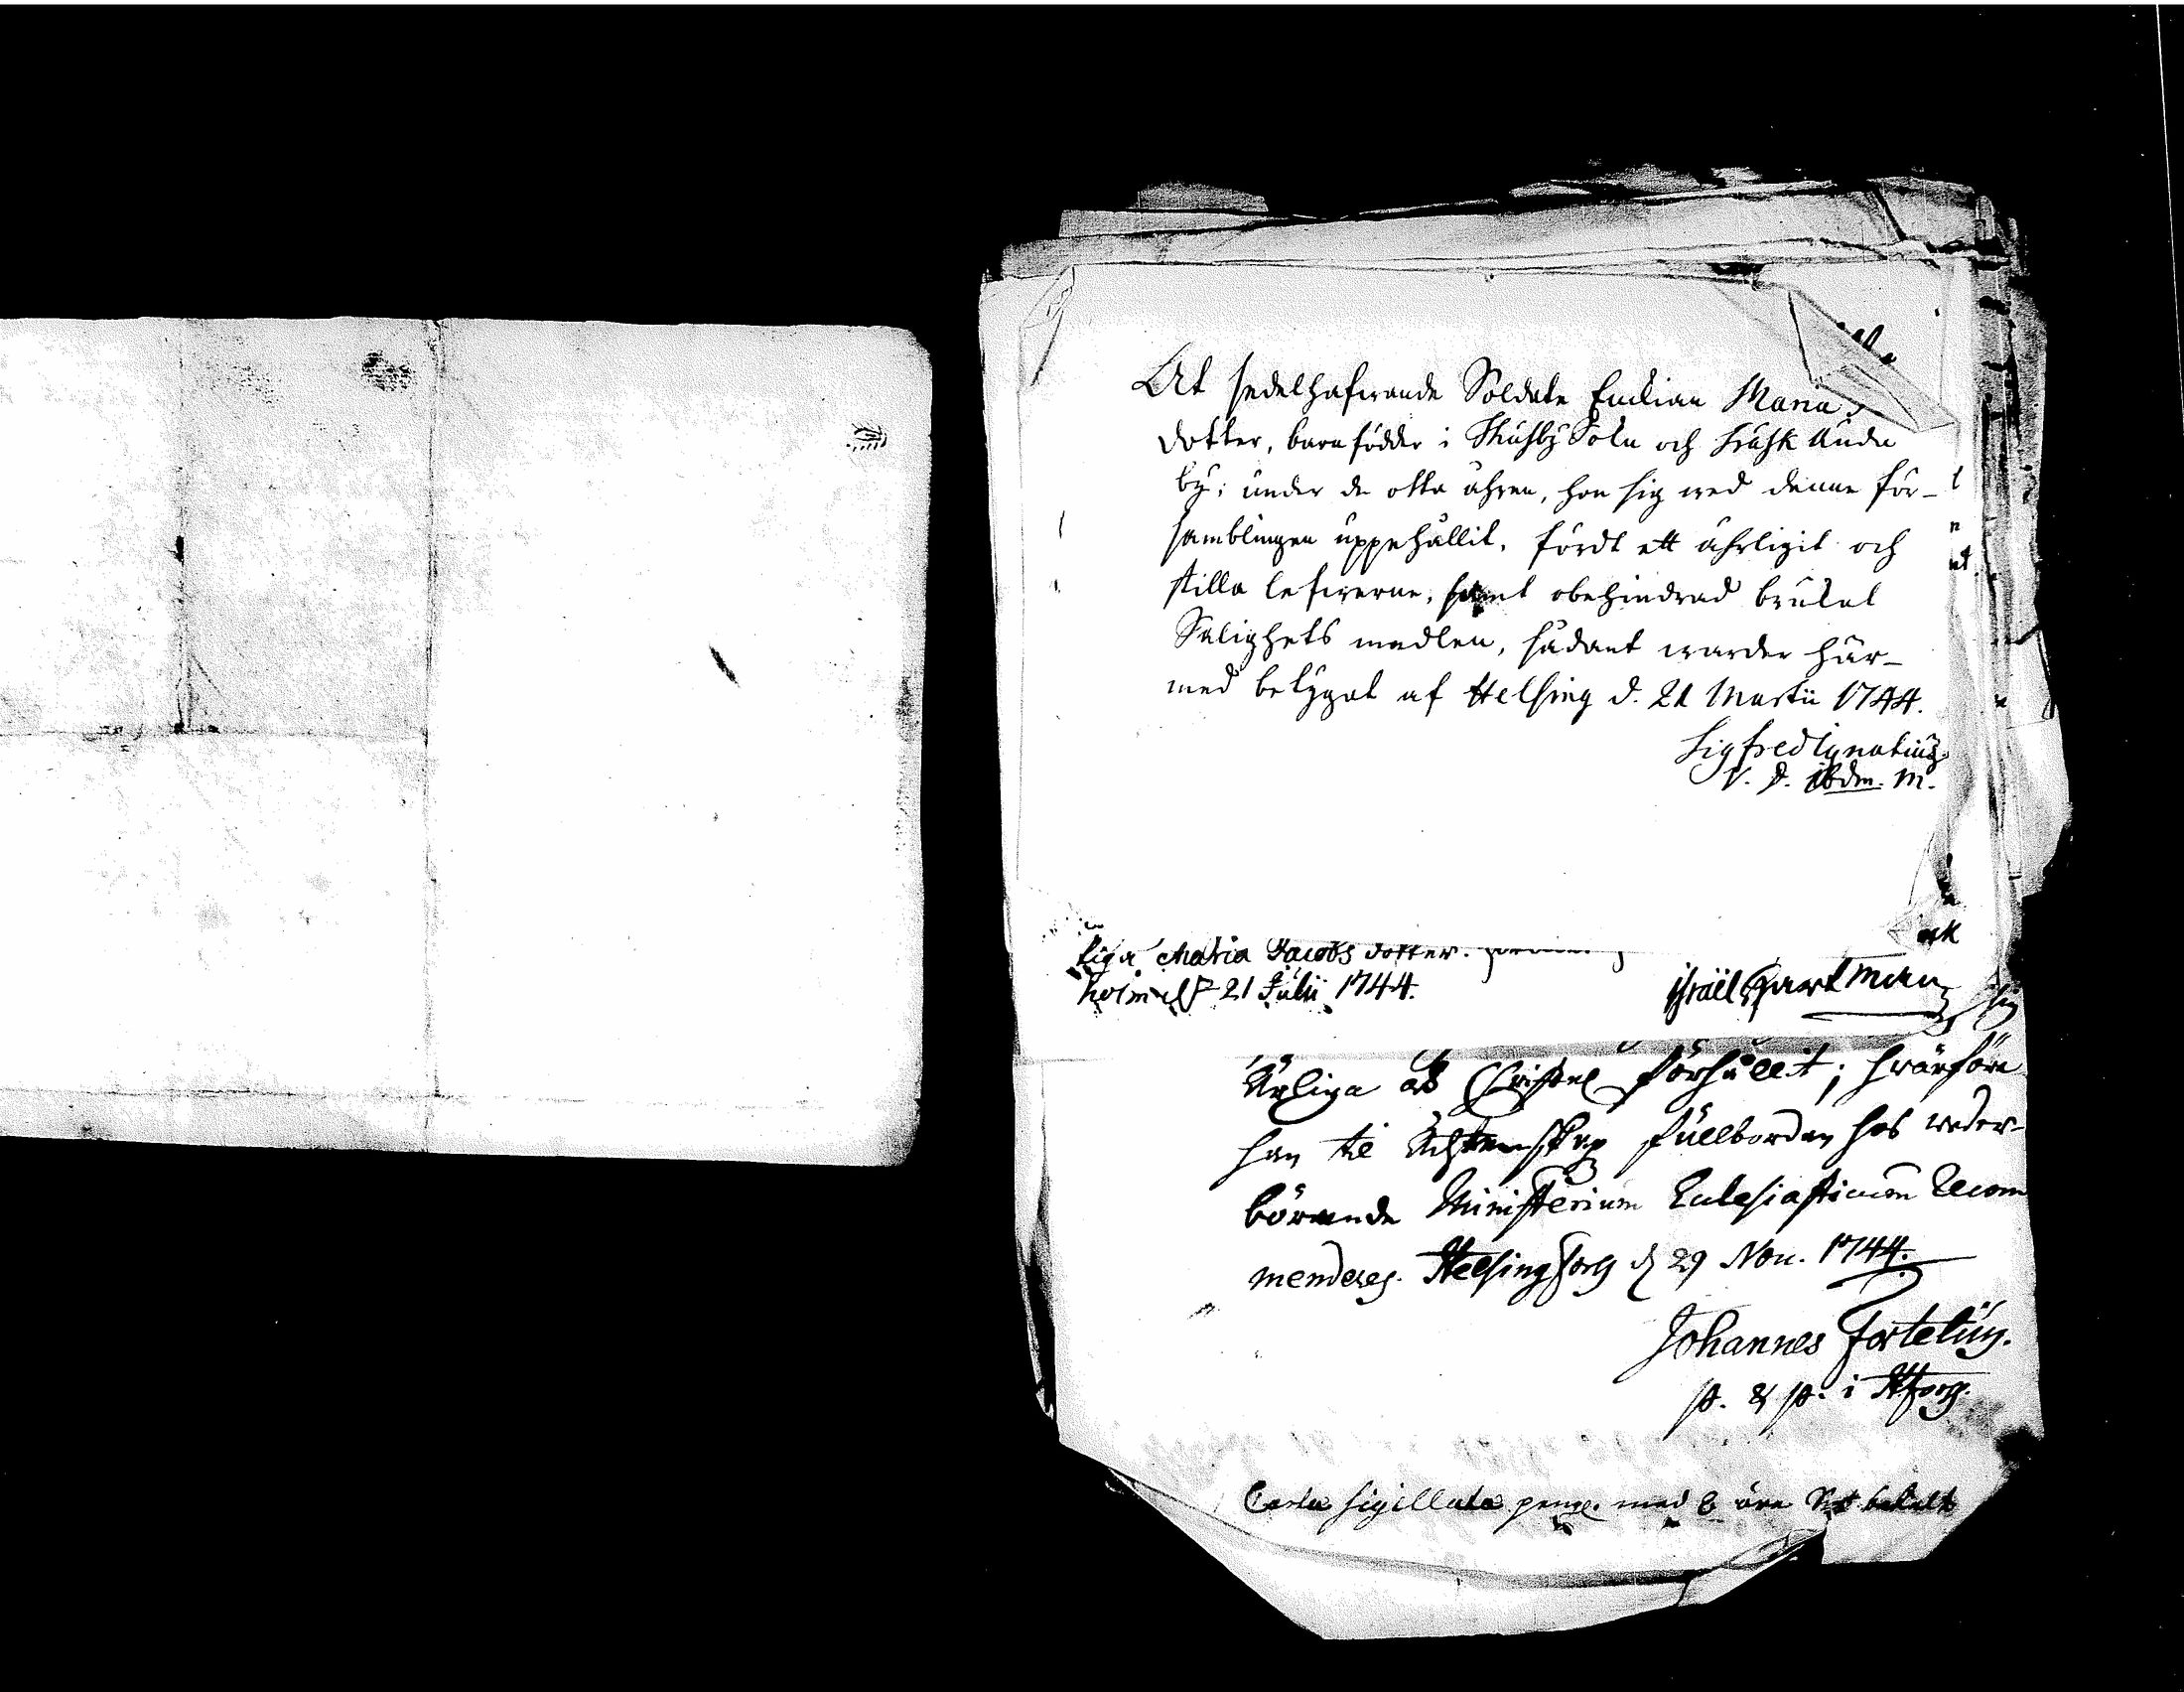 At sedelhafwande Soldate Enckian Maria
dotter, barnfödder i Thusby Sokn och Träsk Ända
by; under de otta åhren, hon sig wed denne för-
samblingen uppehållit, fördt ett ährligit och
stilla lefwerne, samt obehindrad brukat
Salighets medlen, sådant warder här-
med betygat af Helsing d. 21 Martii 1744.
Sigfred Ignatius
V. D. ibdm. M.
Maria Jacobs dotter.
holm d 21 Julii 1744.
Israël Hartman
Ärliga och Christel. förhållit; hwarföre
han til Ächtenskap fullbordan hos weder-
börande Ministerium Eclesiasticum Recom
menderes. Helsingfors d 29 Nov. 1744.
Johannes Forteliüs.
p. & p. i Hfors.
Carta Sigillata peng. med 8 öre betalt